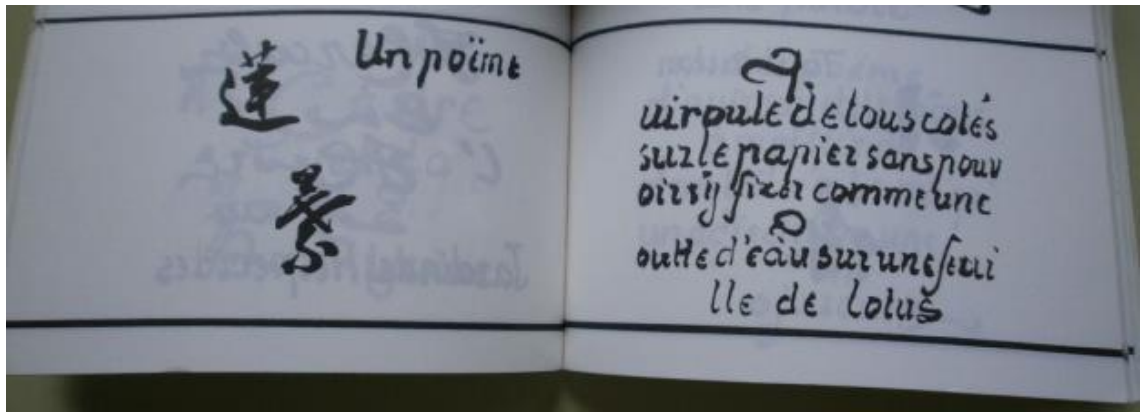 蓮
Un poëme
Q
ui roule de tous cotés
sur le papier sans pouv
oir s'y fixer comme une
G
outte d'eau sur une feui
lle de lotus